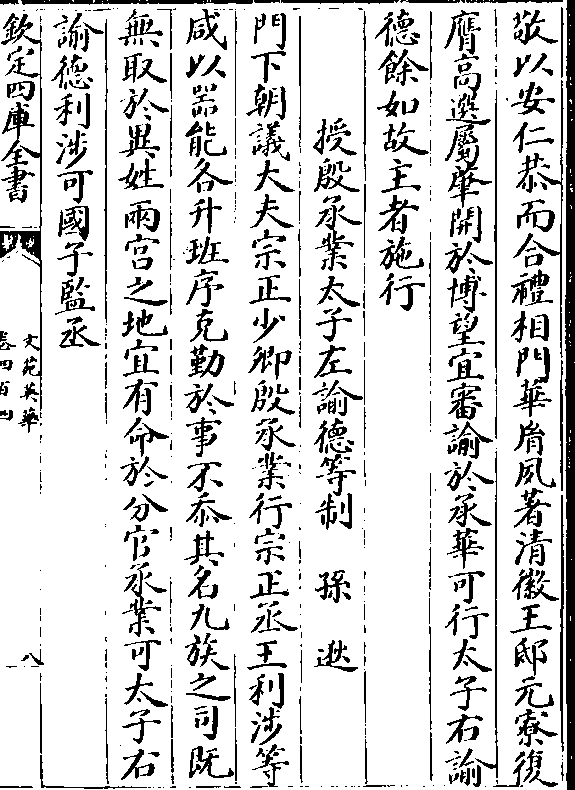 敬以安仁恭而合禮相門華胄夙著清徽王邸元寮復
膺高選屬肇開於博望宜審諭於承華可行太子右諭
德餘如故主者施行
授殷承業太子左諭德等制 孫逖
門下朝議大夫宗正少卿殷承業行宗正丞王利涉等
咸以器能各升班序克勤於事不忝其名九族之司既
無取於異姓兩宫之地宜有命於分官承業可太子右
諭德利涉可國子監丞
欽定四庫全書
文苑英華
卷四百四
八